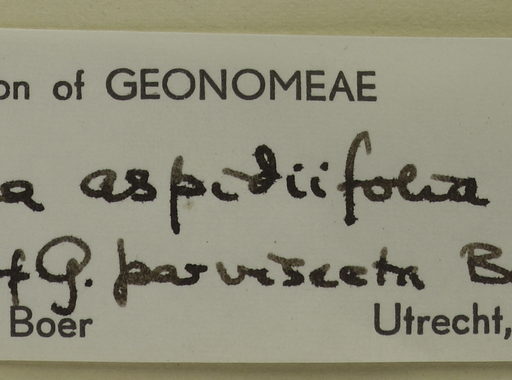 on of GEONOMEAE
a aspidiifolia
f G. parvisecta B
Boer Utrecht,